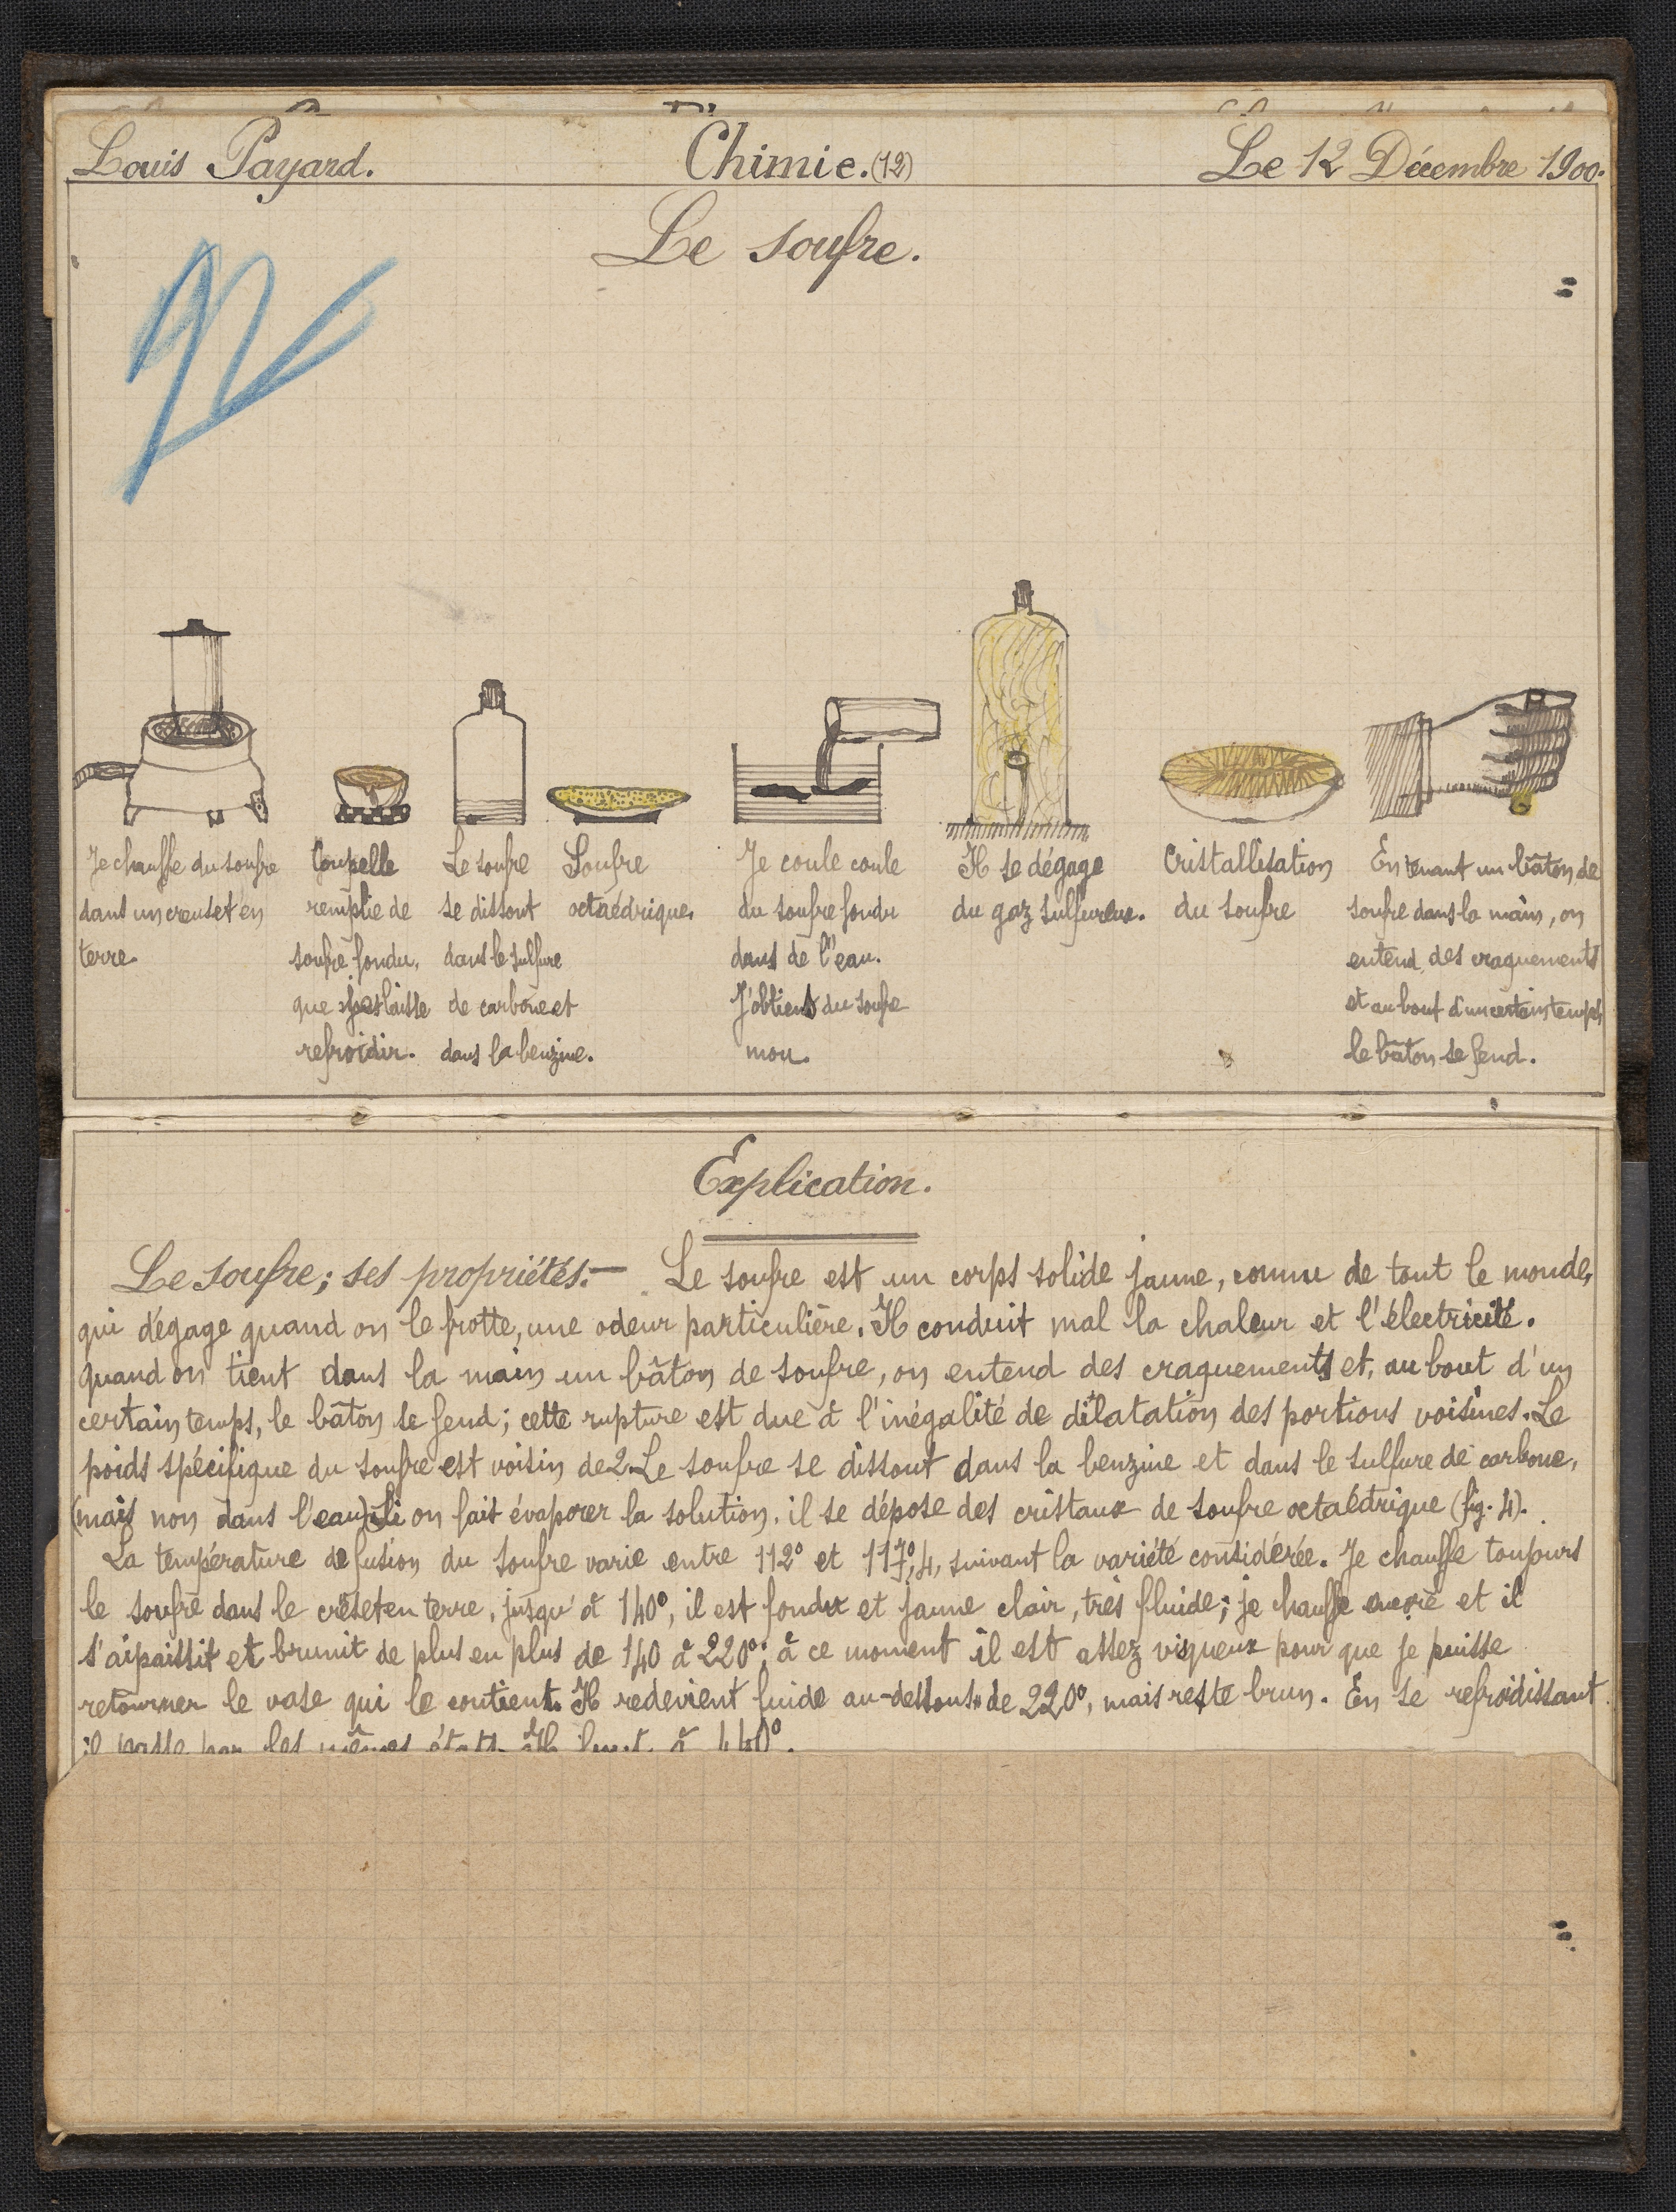 Louis Payard. Chimie. (12) Le 12 Décembre 1900.
Le soufre.
Je chauffe du soufre
dans un creuset en
terre.
Coupelle
remplie de
soufre fondu,
que je laisse
refroidir.
Le soufre
se dissout
dans le sulfure
de carbone et
dans la benzine.
Soufre
octaédrique.
Je coule coule
du soufre fondu
dans de l'eau.
J'obtiens du soufre
mou.
Il se dégage
du gaz sulfureux.
Cristallisation
du soufre
En tenant un bâton de
soufre dans la main, on
entend des craquements
et au bout d'un certain temps,
le bâton se fend.
Explication.
Le soufre; ses propriétés.— Le soufre est un corps solide jaune, connu de tout le monde,
qui dégage quand on le frotte, une odeur particulière. Il conduit mal la chaleur et l'électricité.
Quand on tient dans la main un bâton de soufre, on entend des craquements et, au bout d'un
certain temps, le bâton se fend; cette rupture est due à l'inégalité de dilatation des portions voisines. Le
poids spécifique du soufre est voisin de 2. Le soufre se dissout dans la benzine et dans le sulfure de carbone,
(mais non dans l'eau) si on fait évaporer la solution, il se dépose des cristaux de soufre octaédrique (fig. 4).
La température de fusion du soufre varie entre 112° et 117°,4, suivant la variété considérée. Je chauffe toujours
le soufre dans le creset en terre, jusqu'à 140°, il est fondu et jaune clair, très fluide; je chauffe encore et il
s'aipaissit et brunit de plus en plus de 140 à 220°; à ce moment il est assez visqueux pour que je puisse
retourner le vase qui le contient. Il redevient fuide au-dessous de 220°, mais reste brun. En se refroidissant
il passe par les mêmes états. Il bout à 440°.